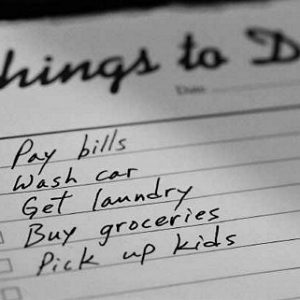 hings to D
Date
Pay bills
Wash car
Get laundry
Buy groceries
Pick up kids